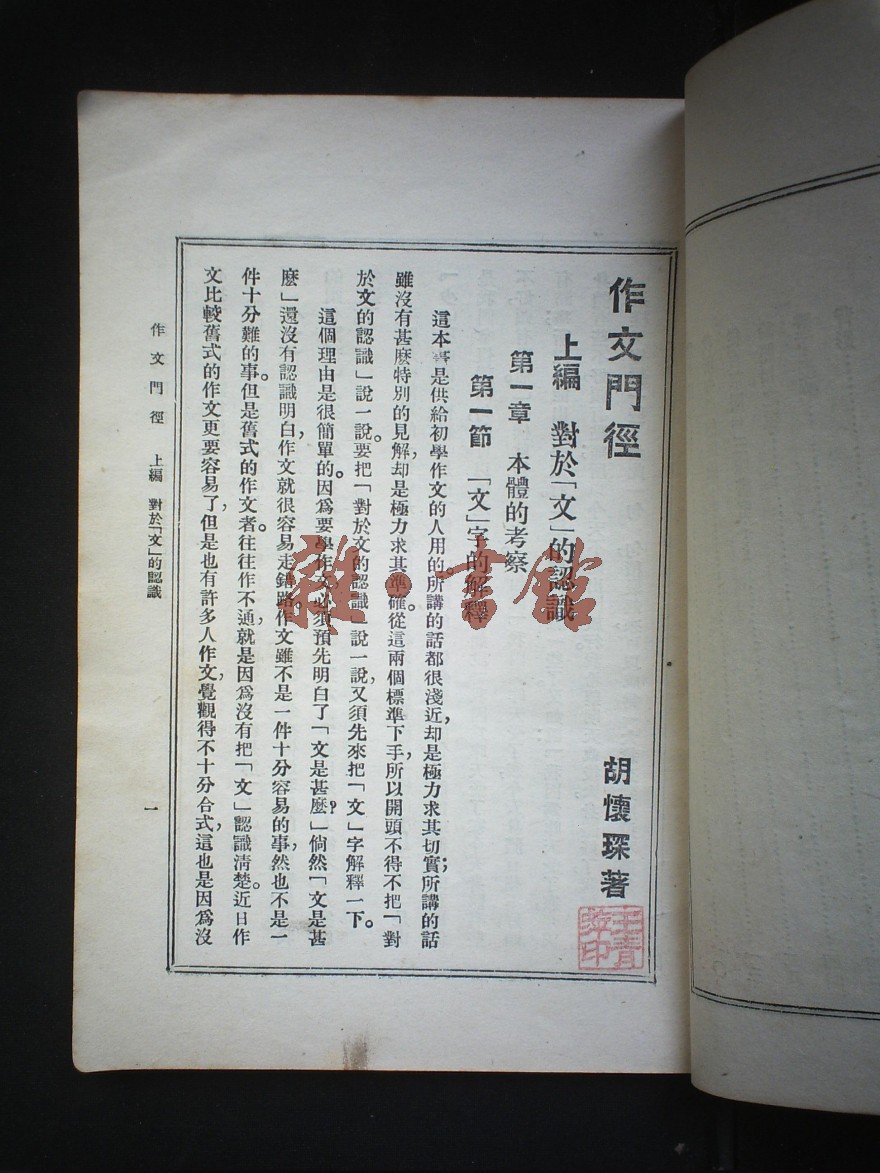 作文門徑
胡懷琛著
上編 對於「文」的認識
第一章 本體的考察
第一節 「文」字的解釋
這本書是供給初學作文的人用的所講的話都很淺近,却是極力求其切實;所講的話
雖沒有甚麽特別的見解,却是極力求其準確。從這兩個標準下手,所以開頭不得不把「對
於文的認識」說一說。要把「對於文的認識」說一說,又須先來把「文」字解釋一下。
這個理由是很簡單的。因爲要學作文,必須預先明白了「文是甚麽?」倘然「文是甚
麽」還沒有認識明白,作文就很容易走錯路。作文雖不是一件十分容易的事,然也不是一
件十分難的事。但是舊式的作文者。往往作不通,就是因爲沒有把「文」認識清楚。近日作
文比較舊式的作文更要容易了,但是也有許多人作文,覺觀得不十分合式,這也是因爲沒
作文門徑 上編 對於「文」的認識
一
雜·書館
王青萍印